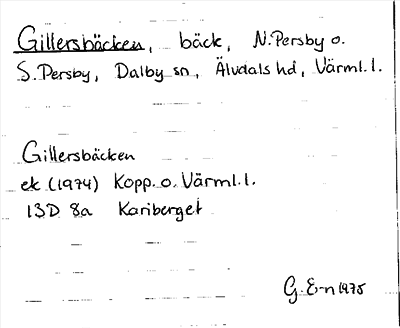 Gillersbäcken, bäck, N.Persby o.
S.Persby, Dalby sn, Älvdals hd, Värml.l.
Gillersbäcken
ek (1974) Kopp. o. Värml.l.
13D 8a Kariberget
G. E-n 1975